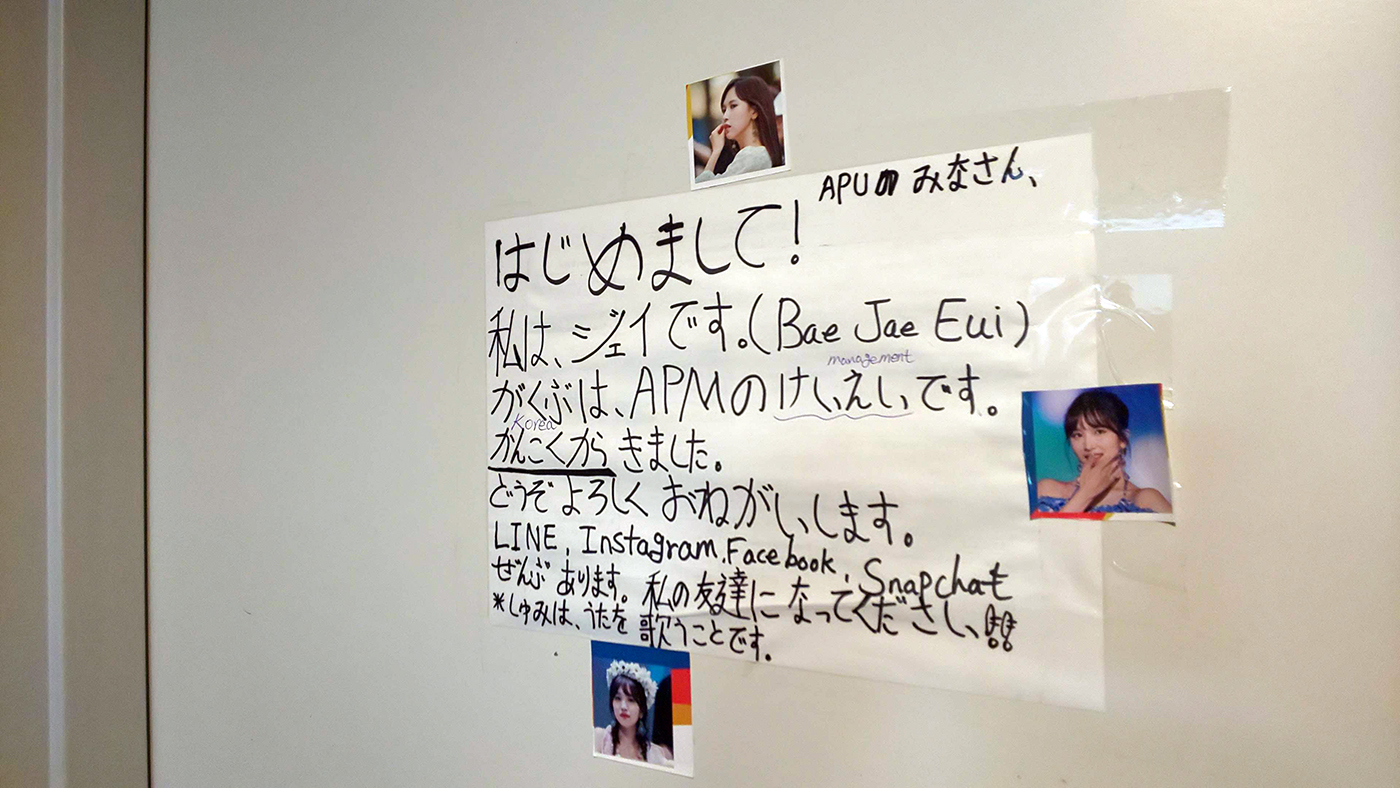 APUの みなさん、
はじめまして！
私は、ジェイです。(Bae Jae Eui)
management
がくぶは、APMのけいえいです。
Korea
かんこくから きました。
どうぞ よろしく おねがいします。
LINE, Instagram, Facebook, Snapchat
ぜんぶ あります。私の友達に なってください!!
*しゅみは、うたを 歌うことです。